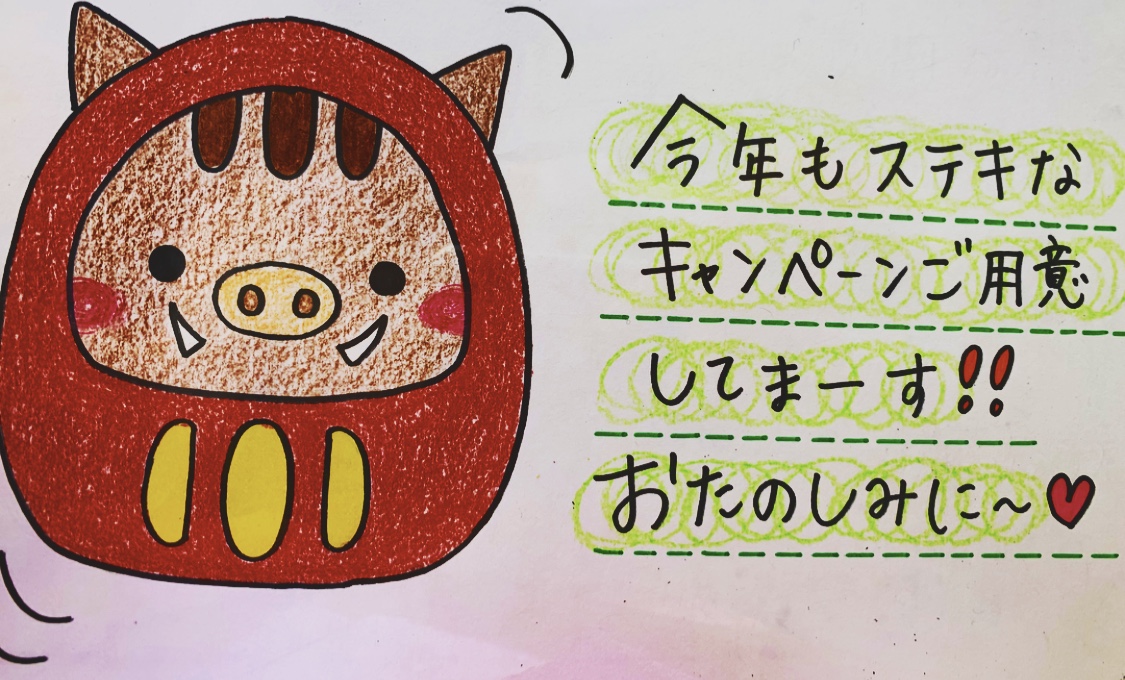 今年もステキな
キャンペーンご用意
してまーす!!
おたのしみに〜♥